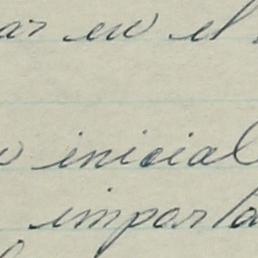 ar en el
o inicial
importa